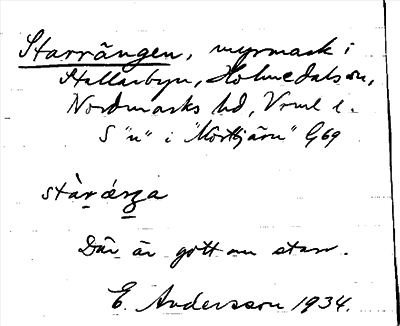 Starrängen, myrmark i
Stallarbyn, Holmedals sn,
Nordmarks hd, Vrml l.
S "n" i "Mörttjärn" G69
stàr ǽŋa
Där är gott om starr.
E. Andersson 1934.